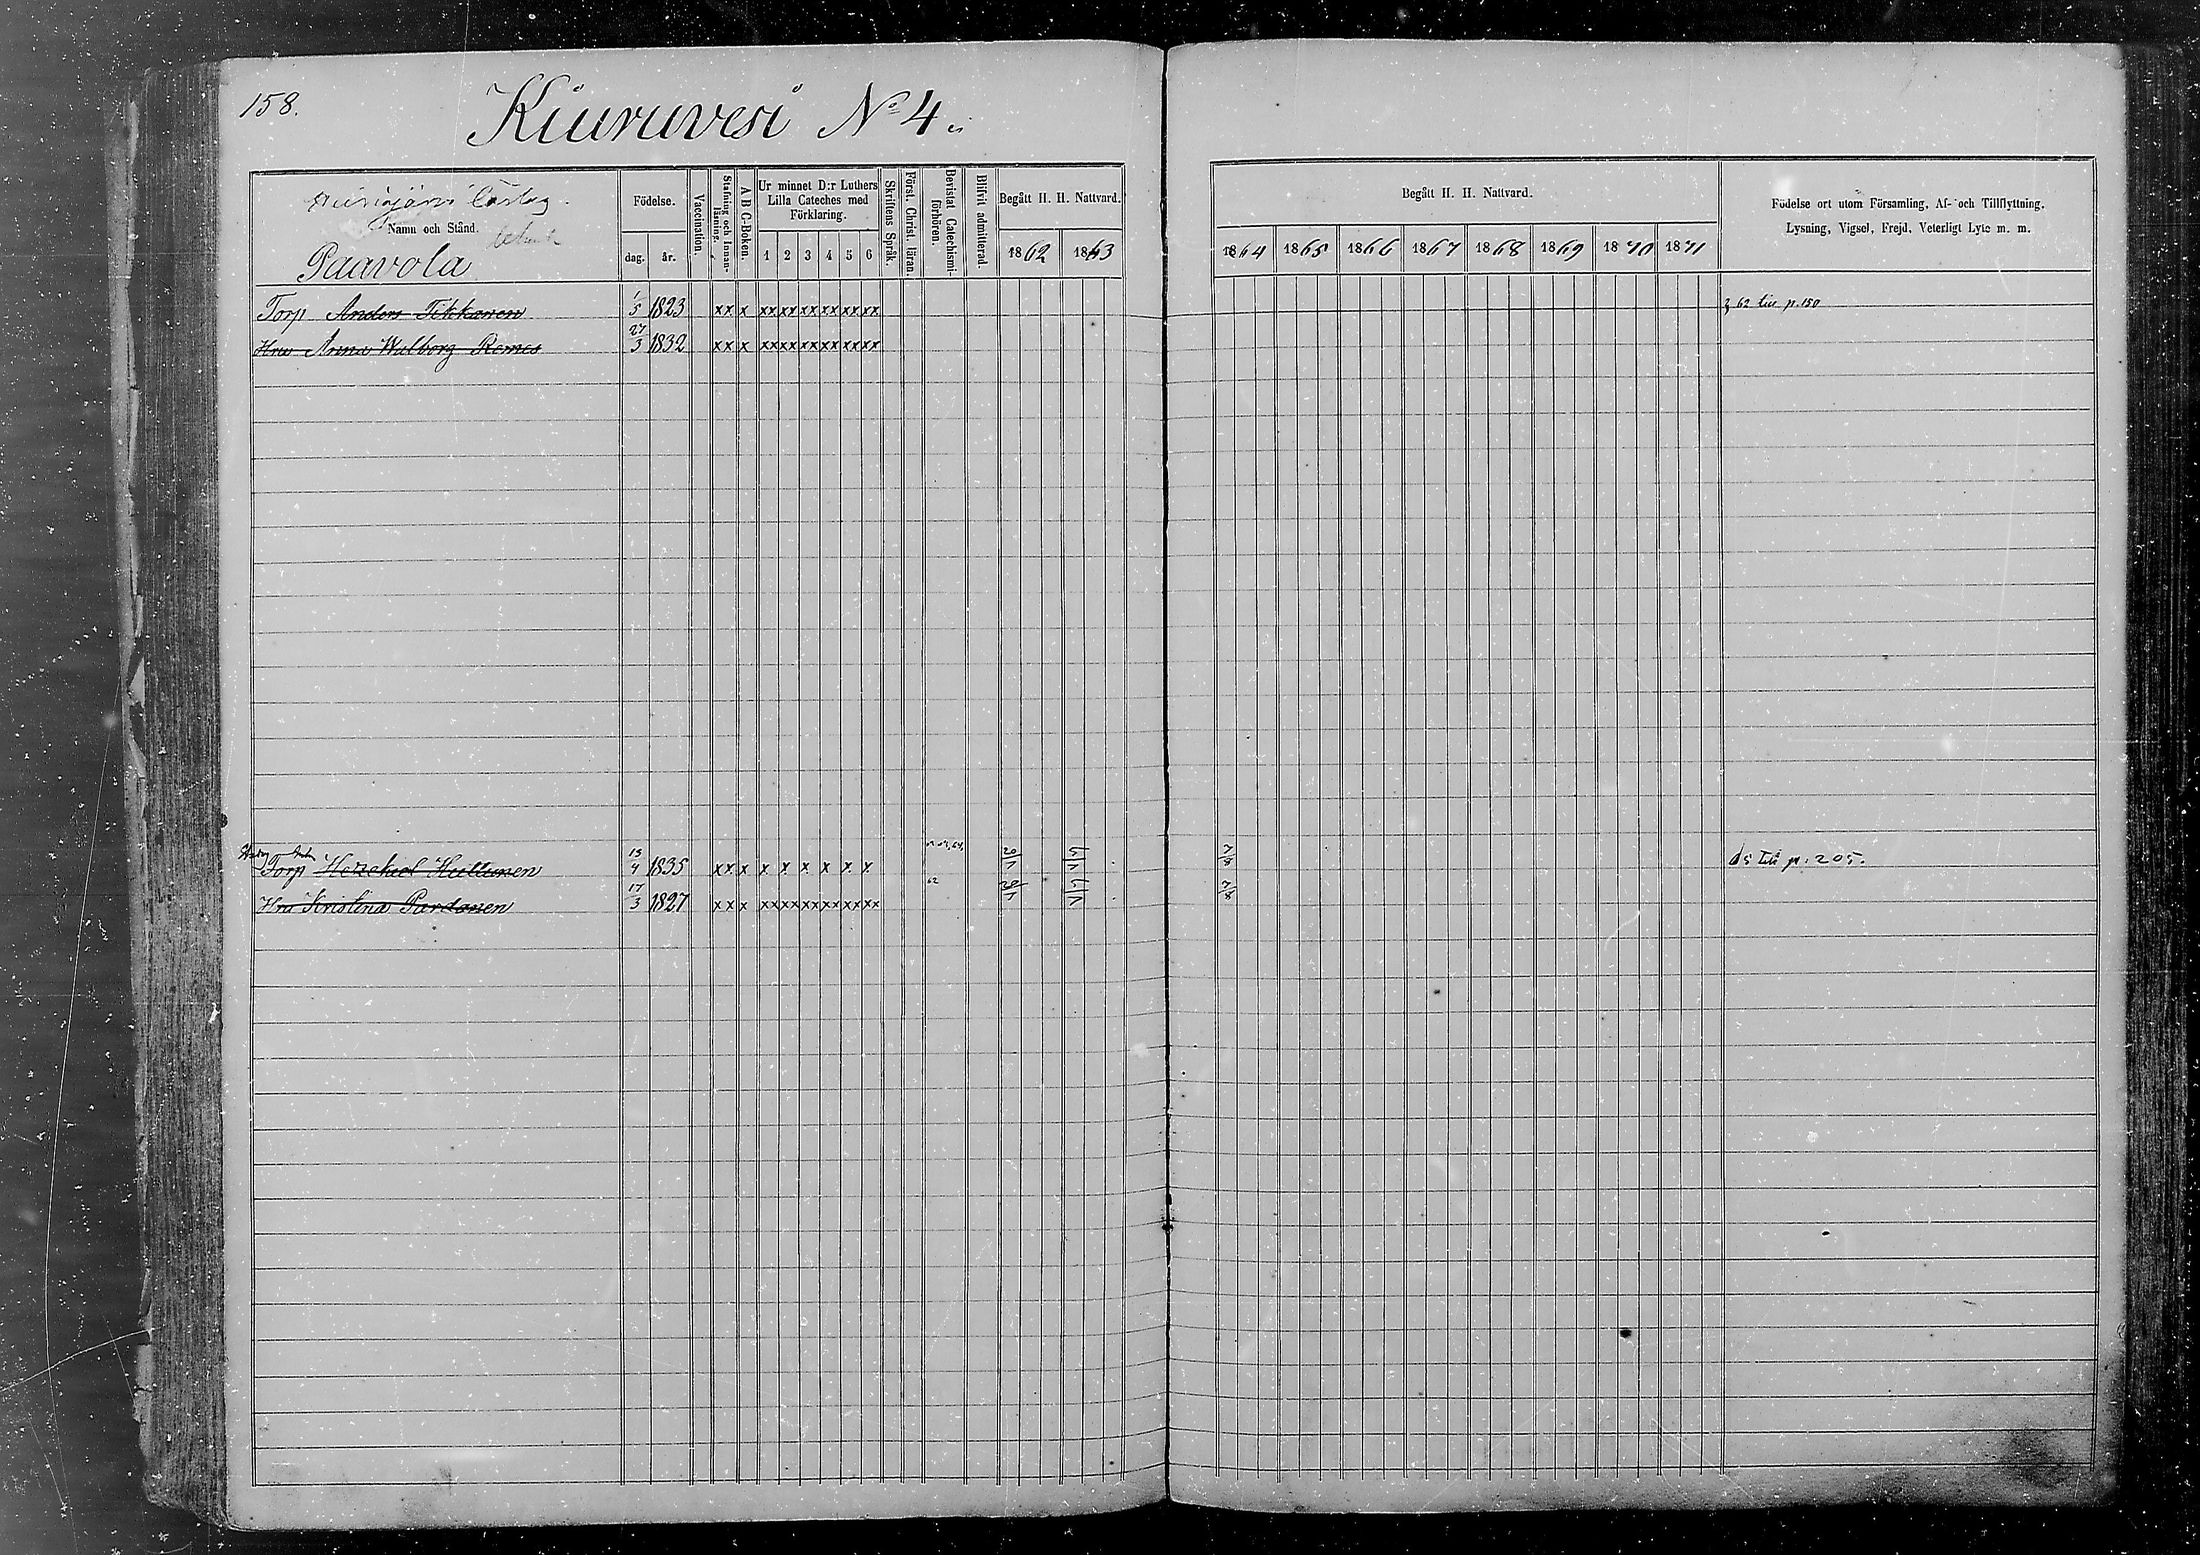 158.
Kiuruvesi No 4
Namn och Stånd.
Paavola
Födelse.
dag. år.
Vaccination.
Stafning och Innanläsning.
A B C-Boken.
Ur minnet D:r Luthers Lilla Cateches med Förklaring.
1 2 3 4 5 6
Skriftens Språk.
Först. Christ. läran.
Bevistat Catechismiförhören.
Blifvit admitterad.
Begått H. H. Nattvard.
1862 1863
Begått H. H. Nattvard.
1864 1865 1866 1867 1868 1869 1870 1871
Födelse ort utom Församling, Af- och Tillflyttning,
Lysning, Vigsel, Frejd, Veterligt Lyte m. m.
Torp Anders Tikkanen 1/5 1823 xx x xx xx xx xx xx xx 62 p. 150
Hru Anna Walborg Remes 27/3 1832 xx x xx xx xx xx xx xx
Torp Hetzekiel Huttunen 13/4 1835 xx x x x x x x x p. 205.
Hru Kristina Pardanen 17/3 1827 xx x xx xx xx xx xx xx 62